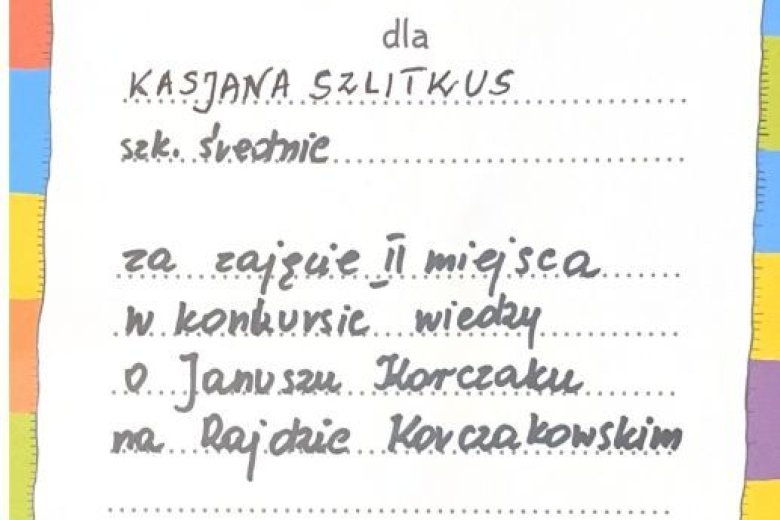 dla
KASJANA SZLITKUS
szk. średnie
za zajęcie II miejsca
w konkursie wiedzy
o Januszu Korczaku
na Rajdzie Korczakowskim